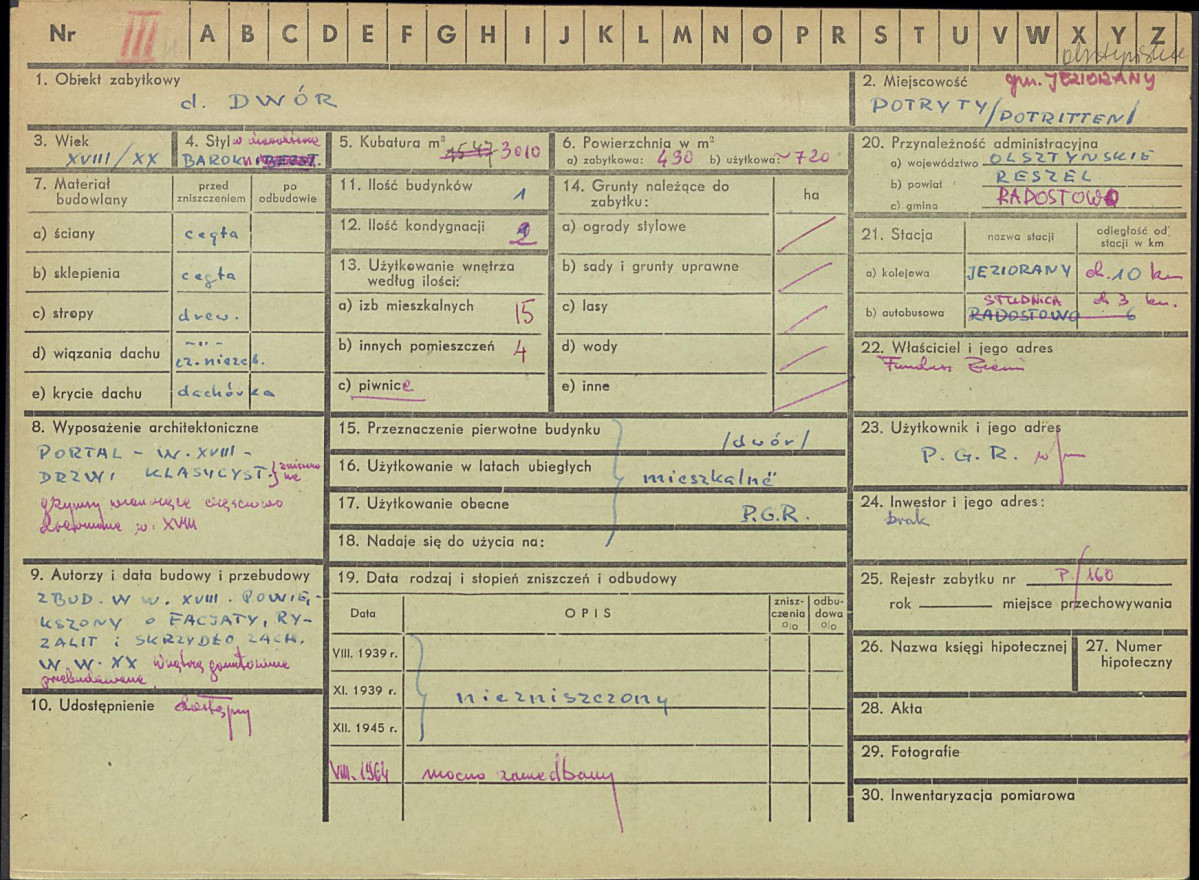 Nr III A B C D E F G H I J K L M N O P R S T U V W X Y Z
1. Obiekt zabytkowy
d. DWÓR
2. Miejscowość gm. JEZIORANY
POTRYTY /POTRITTEN/
3. Wiek
XVIII/XX
4. Styl
BAROK
5. Kubatura m³ 1547 3010
6. Powierzchnia w m²
a) zabytkowa: 430 b) użytkowa: ~720
7. Materiał budowlany
przed zniszczeniem
po odbudowie
a) ściany cegła
b) sklepienia cegła
c) stropy drew.
d) wiązania dachu -"-
e) krycie dachu dachówka
8. Wyposażenie architektoniczne
PORTAL - W. XVIII -
DRZWI KLASYCYST.
w. XVIII
9. Autorzy i data budowy i przebudowy
ZBUD. W W. XVIII. POWIĘ-
KSZONY O FACJATY, RY-
ZALIT i SKRZYDŁO ZACH.
W W. XX wnętrza gruntownie
przebudowane
10. Udostępnienie dostępny
11. Ilość budynków 1
12. Ilość kondygnacji 2
13. Użytkowanie wnętrza
według ilości:
a) izb mieszkalnych 15
b) innych pomieszczeń 4
c) piwnice
14. Grunty należące do
zabytku:
ha
a) ogrody stylowe
b) sady i grunty uprawne
c) lasy
d) wody
e) inne
15. Przeznaczenie pierwotne budynku /dwór/
16. Użytkowanie w latach ubiegłych mieszkalne
17. Użytkowanie obecne P.G.R.
18. Nadaje się do użycia na:
19. Data rodzaj i stopień zniszczeń i odbudowy
Data
OPIS
znisz-
czenia
%
odbu-
dowa
%
VIII. 1939 r.
XI. 1939 r. niezniszczony
XII. 1945 r.
VIII. 1964 mocno zaniedbany
20. Przynależność administracyjna
a) województwo OLSZTYŃSKIE
b) powiat RESZEL
c) gmina RADOSTOWO
21. Stacja
nazwa stacji
odległość od
stacji w km
a) kolejowa JEZIORANY ok. 10 km
STUDNICA ok 3 km.
b) autobusowa RADOSTOWO 6
22. Właściciel i jego adres
Fundusz Ziemi
23. Użytkownik i jego adres
P.G.R. w/m
24. Inwestor i jego adres:
brak
25. Rejestr zabytku nr P/160
rok miejsce przechowywania
26. Nazwa księgi hipotecznej
27. Numer
hipoteczny
28. Akta
29. Fotografie
30. Inwentaryzacja pomiarowa